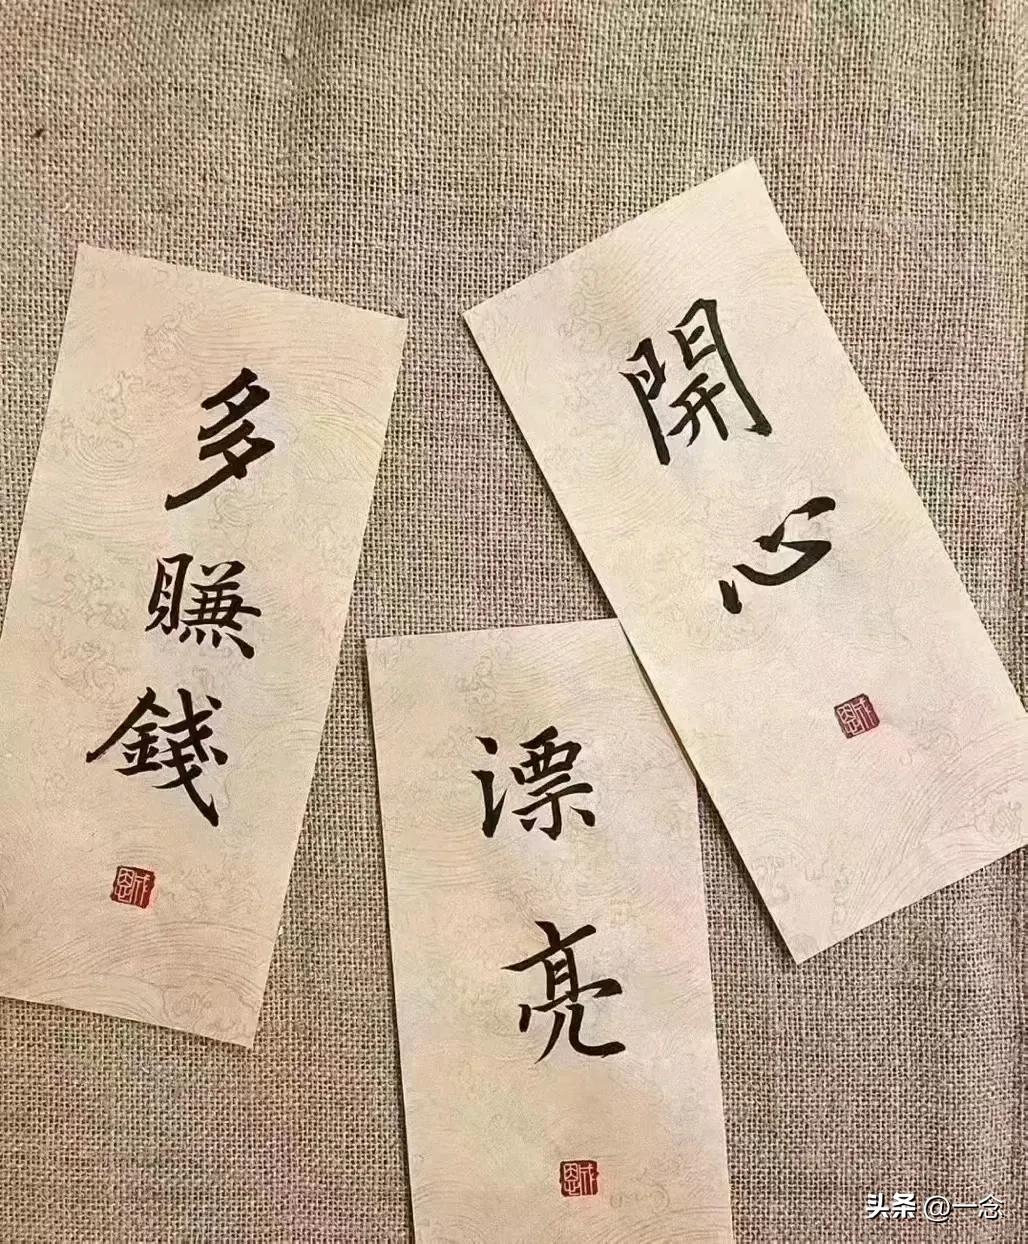 多賺錢
開心
漂亮
头条 @一念